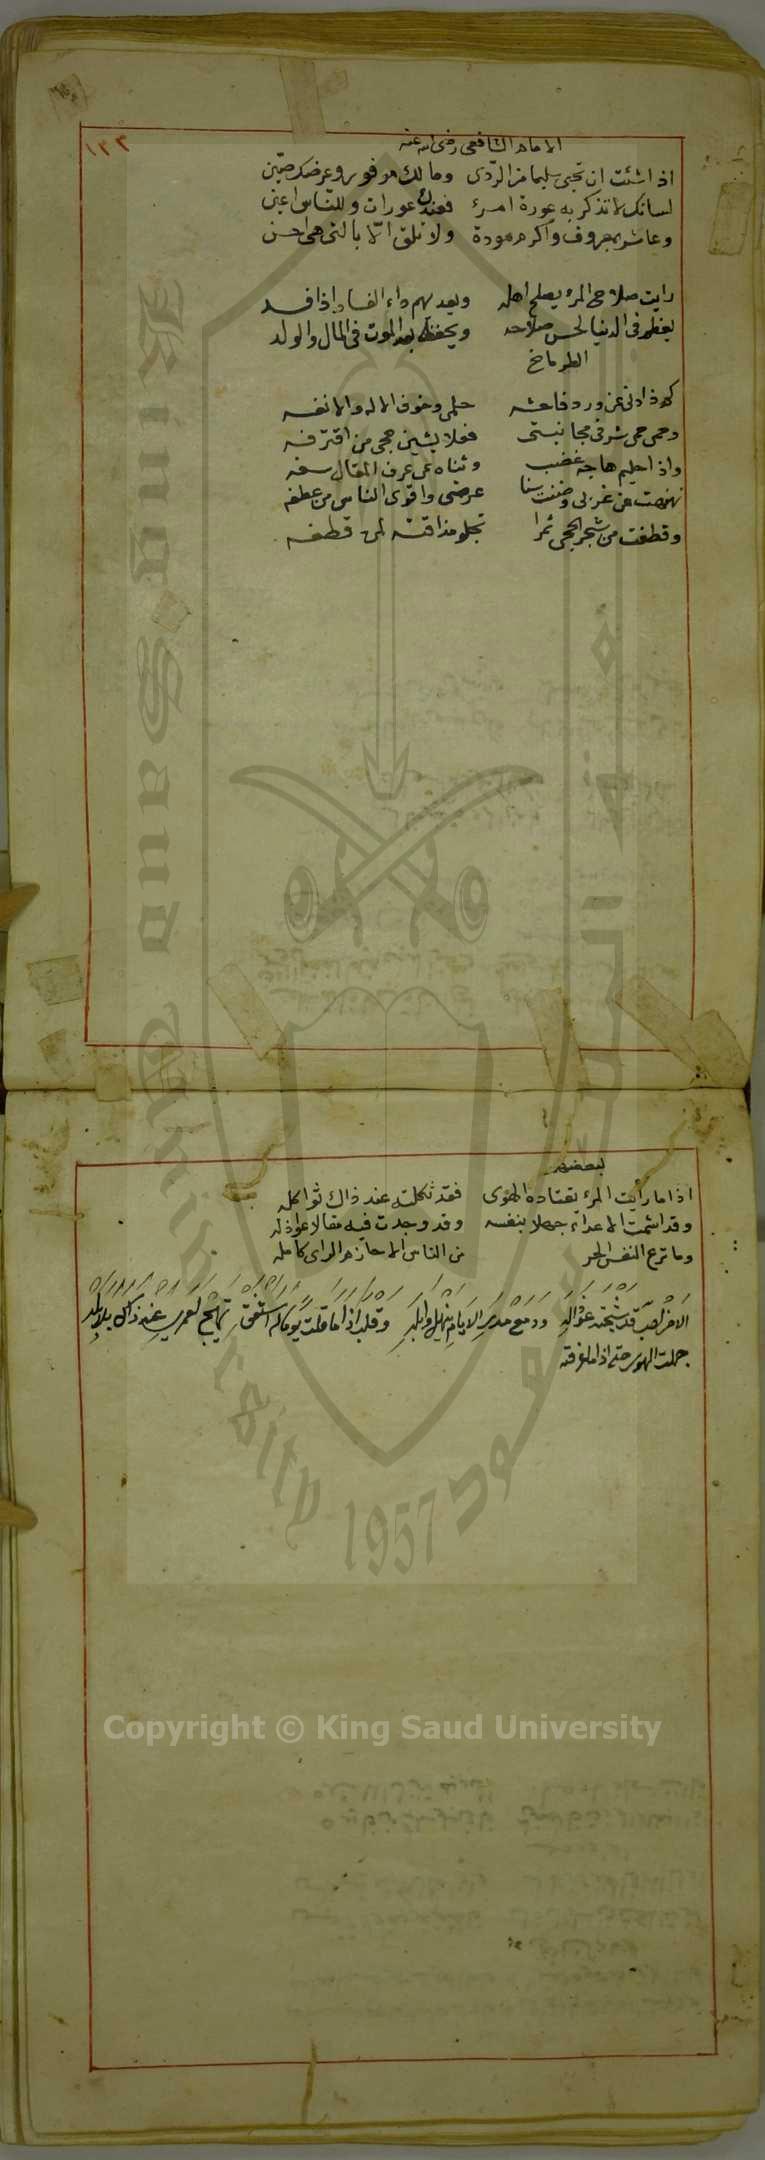 ١٣٣
الامام الشافعى رضى الله عنه
اذا شئت ان تحيى سليما من الردى وما لك موفور وعرضك صين
لسانك لا تذكر به عورة امرء فعندك عورات وللناس اعين
وعاشر بمعروف واكرم مودة ولا تلق الا بالتى هى احسن
رايت صلاح المرء يصلح اهله ويعديهم داء الفساد اذا فسد
يعظم فى الدنيا لحسن صلاحه ويحفظ بعد الموت فى المال والولد
الطرماخ
كم ذادنى عن ورد فاحشة حلمى وخوف الاله والانفه
وحمى حمى شرفى مجانبتى فعلا يشين حجى من اقترفه
واذا حليم هاجه غضب وثناه عن عرف المقال سفه
نهنهت من غربى وضنت سنا عرضى واقوى الناس من عطفه
وقطفت من شجر الحجى ثمرا تحلو مذاقته لمن قطفه
لبعضهم
اذا ما رأيت المرء يقتاده الهوى فقد ثكلته عند ذاك ثواكله
وقد اشمت الاعداء جهلا بنفسه وقد وجدت فيه مقالا عواذله
وما تزع النفس الحر من الناس الا حازم الراى كامله
الا من لصب قد شجته عواذله ودمع مدى الايام ينهل وابله وقلب اذا ما قلت يوما له استفق تهيج لعمرى عند ذاك بلابله
حملت الهوى حتى اذا ما عرفته
Copyright © King Saud University
King Saud University
1957